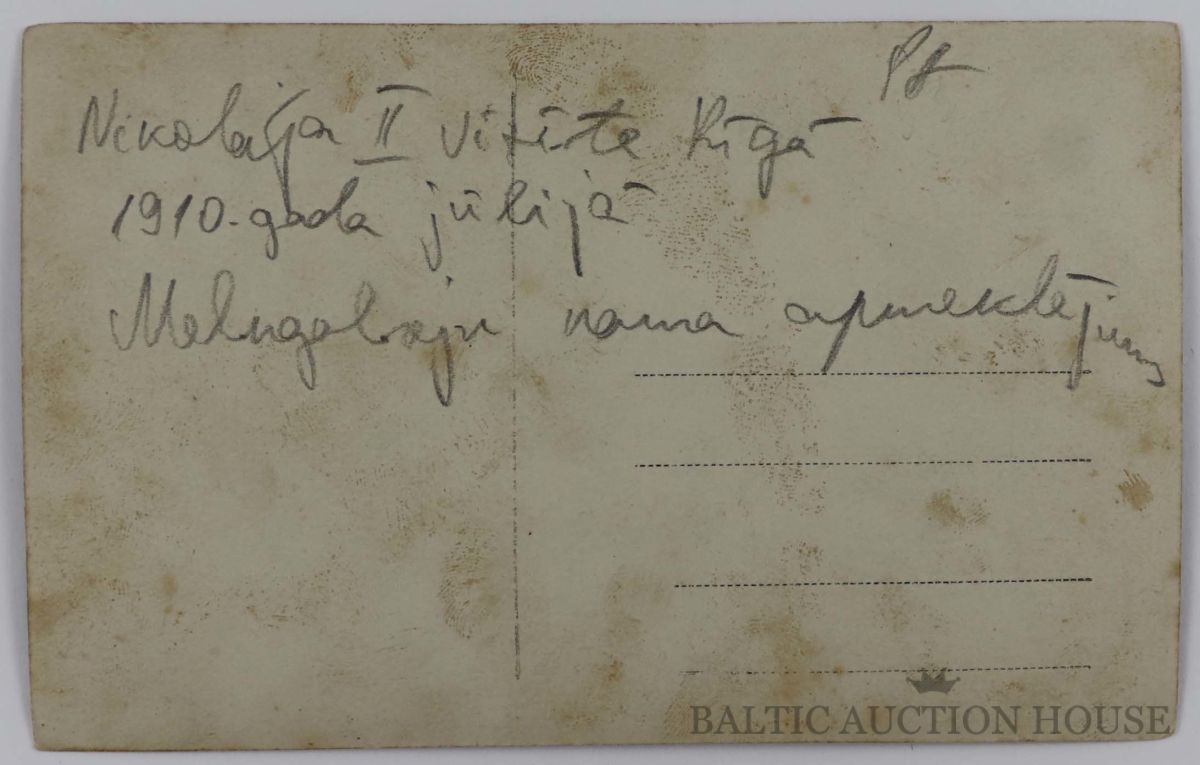 Nikolaja II vizīte Rīgā
1910. gada jūlijā
Melngalvju nama apmeklējums
BALTIC AUCTION HOUSE